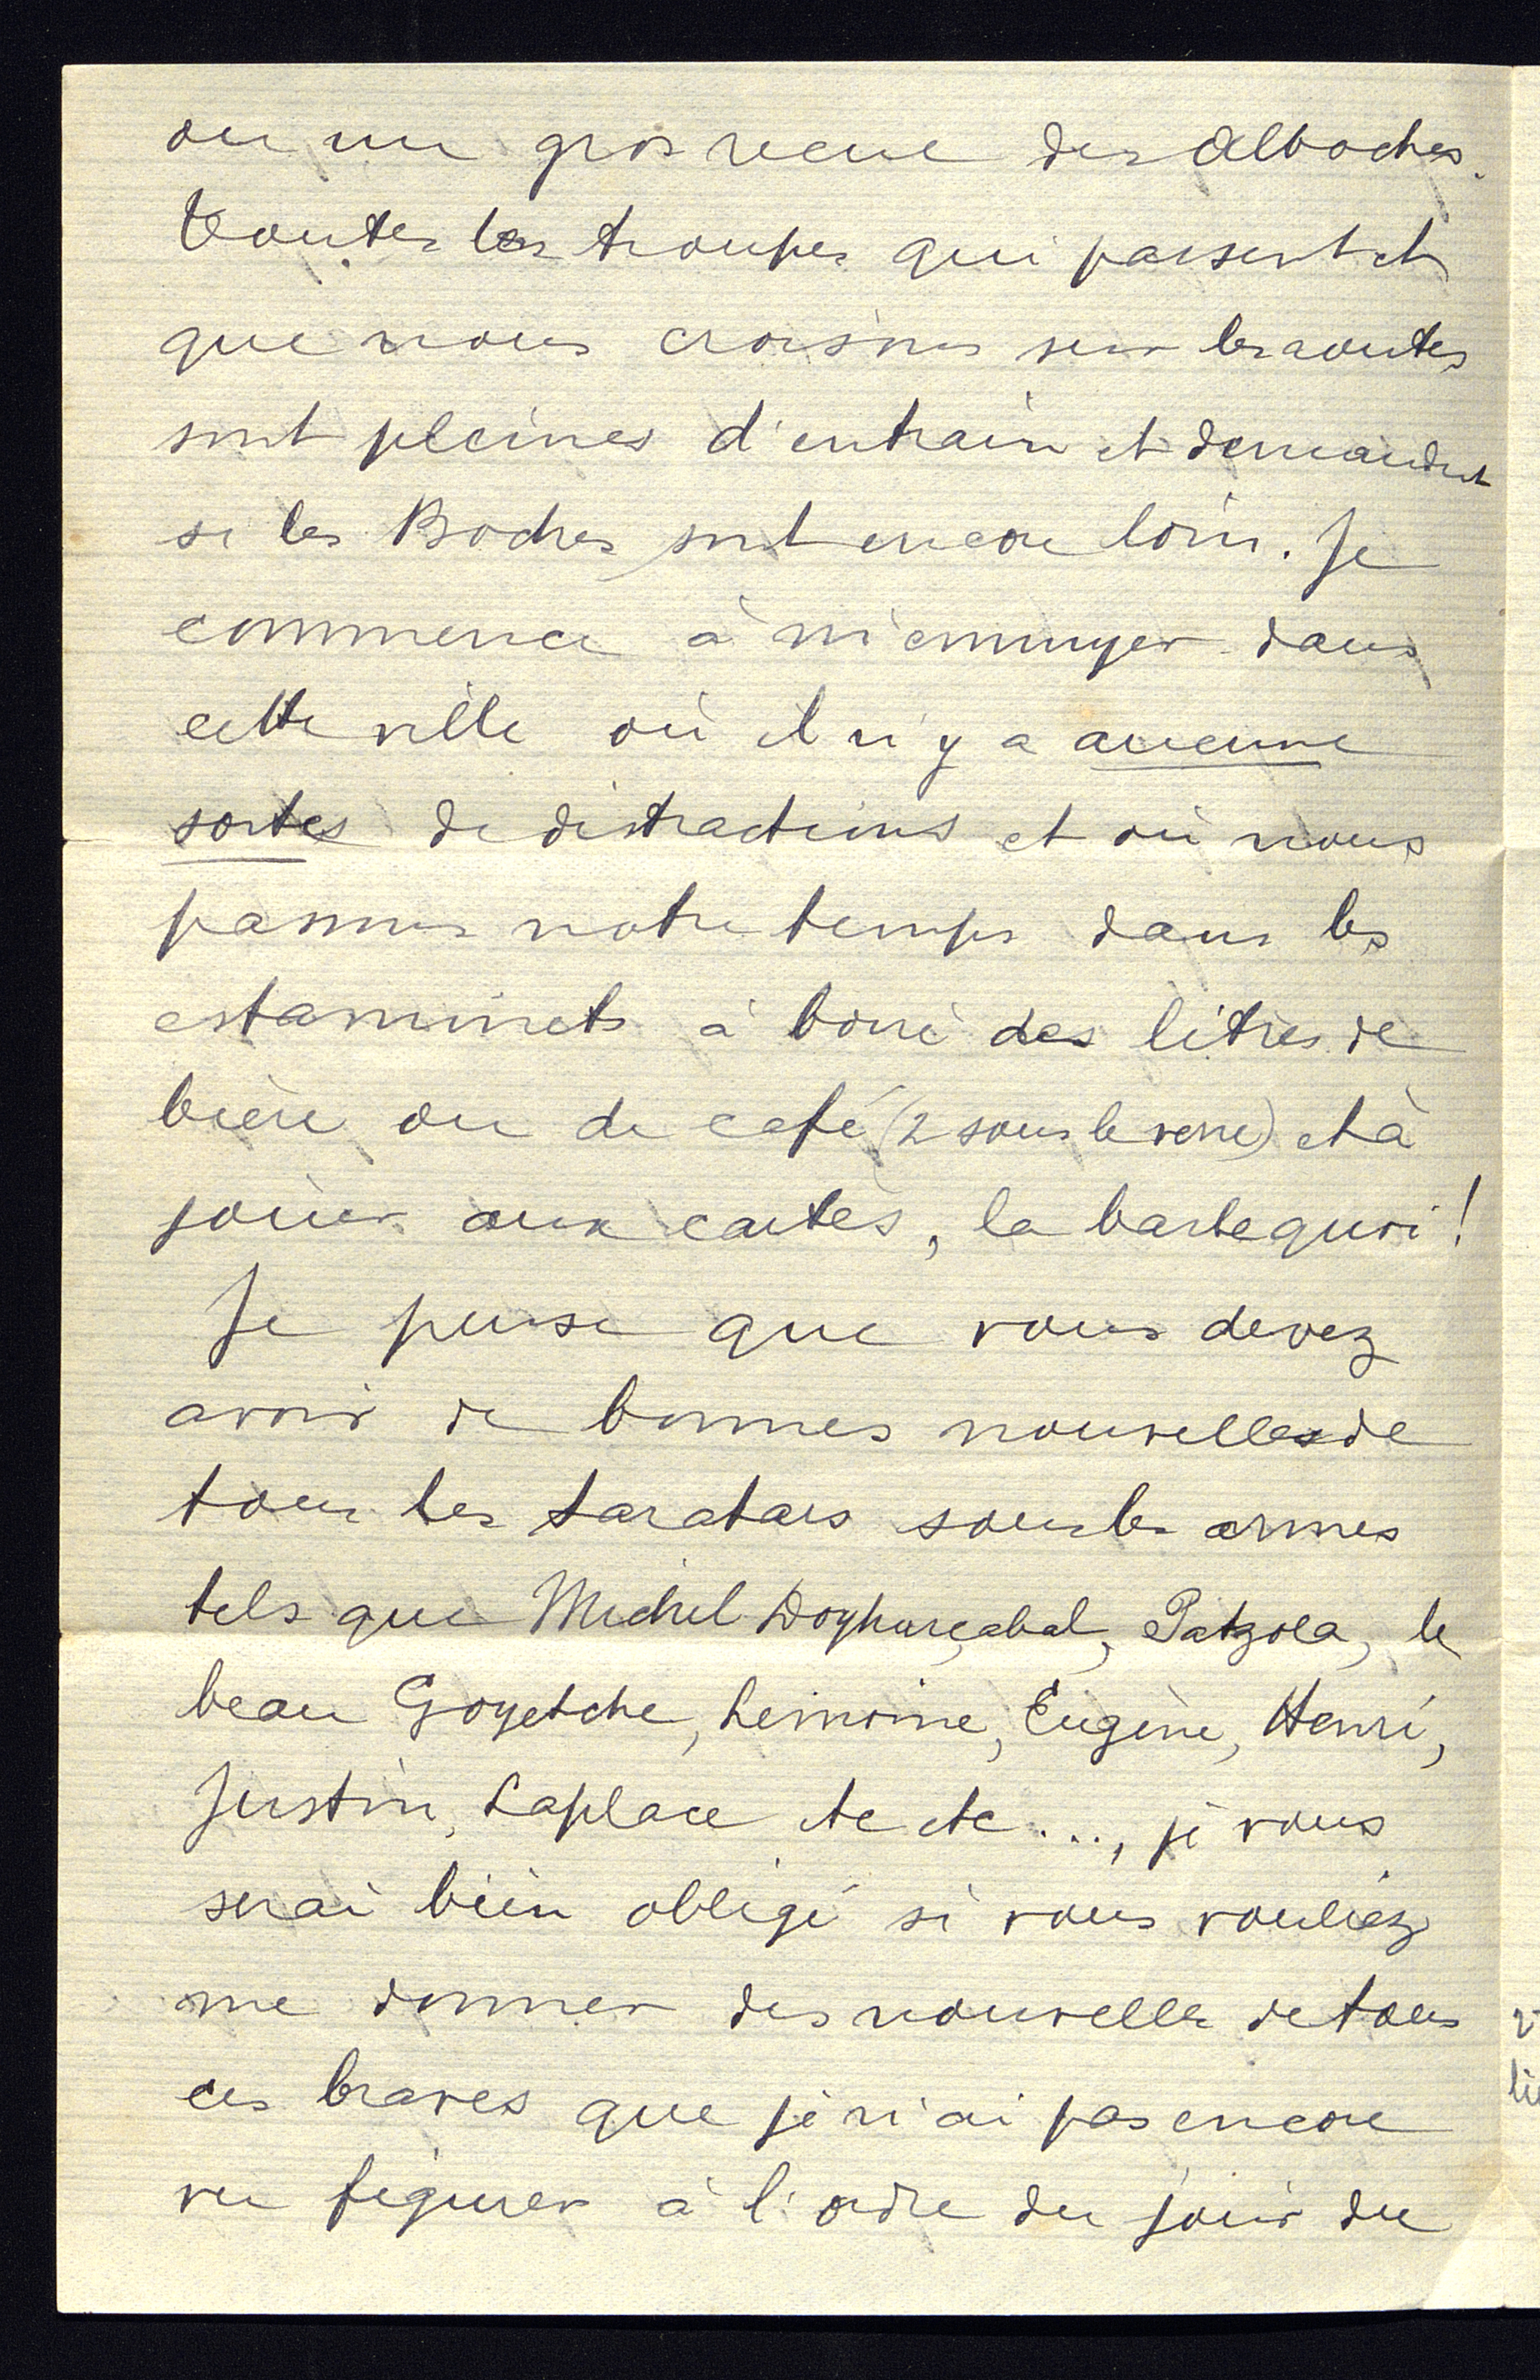 ou un gros recul des Alboches.
Toutes les troupes qui passent et
que nous croisons sur les routes
sont pleines d'entrain et demandent
si les Boches sont encore loin. Je
commence à m'ennuyer dans
cette ville où il n'y a aucune
sortes de distractions et où nous
passons notre temps dans les
estaminets à boire des litres de
bière ou de café (2 sous le verre) et à
jouer aux cartes, la barbe quoi !
Je pense que vous devez
avoir de bonnes nouvelles de
tous les taratars sous les armes
tels que Michel Doyharçabal, Patzola, le
beau Goyetche, Lemoine, Eugène, Henri,
Justin, Laplace etc etc ..., je vous
serai bien obligé si vous vouliez
me donner des nouvelles de tous
ces braves que je n'ai pas encore
vu figurer à l'ordre du jour du